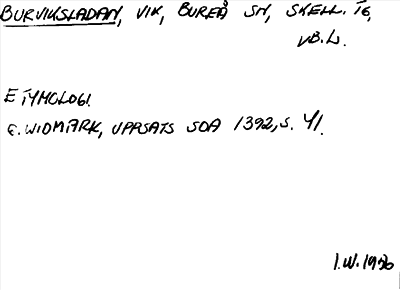 BURVIKSLADAN, VIK, BUREÅ SN, SKELL. TG,
VB.L.
ETYMOLOGI.
G. WIDMARK, UPPSATS SOA 1392, S. 41.
I.W. 1956